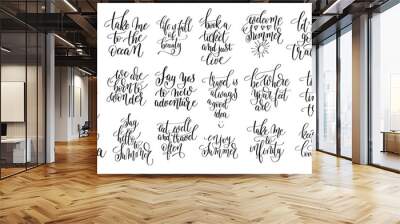 take me
to the
ocean
life is full
of
beauty
book a
ticket
and just
live
welcome
to our
summer
go
we are
born to
wonder
Say yes
to new
adventure
travel is
always
a good
idea
be where
your feet
are
Say
hello
to
Summer
eat well
and travel
often
enjoy
summer
take me
to
infinity